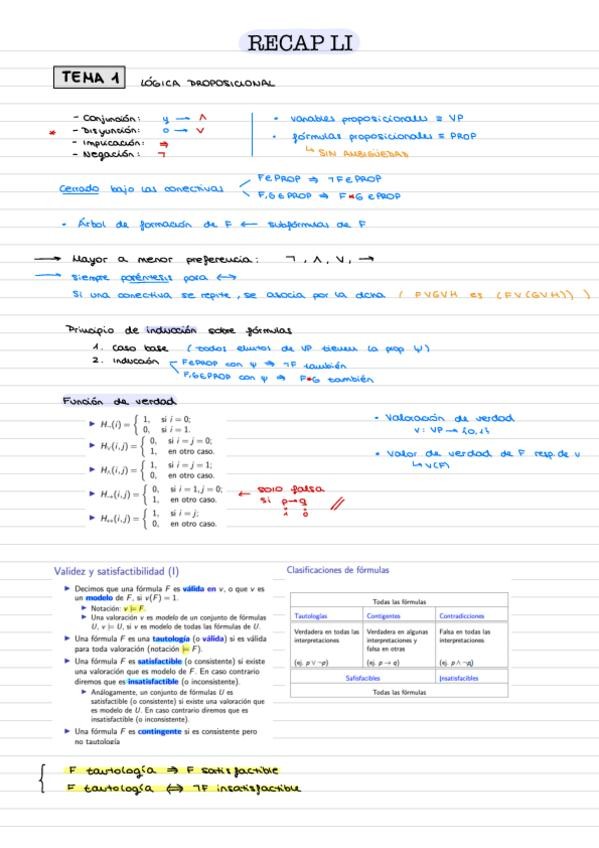 RECAP LI
TEMA 1 LÓGICA PROPOSICIONAL
- Conjunción: y → ∧
* - Disyunción: o → ∨
- Implicación: →
- Negación: ¬
• variables proposicionales ≡ VP
• fórmulas proposicionales ≡ PROP
↳ SIN AMBIGÜEDAD
Cerrado bajo las conectivas
F∈PROP ⇒ ¬F∈PROP
F,G∈PROP ⇒ F*G∈PROP
• Árbol de formación de F ← subfórmulas de F
→ Mayor a menor preferencia: ¬, ∧, ∨, →
→ Siempre paréntesis para ↔
Si una conectiva se repite, se asocia por la dcha ( F∨G∨H es (F∨(G∨H)) )
Principio de inducción sobre fórmulas
1. caso base (todos elmtos de VP tienen la prop Ψ)
2. inducción
F∈PROP con Ψ ⇒ ¬F también
F,G∈PROP con Ψ ⇒ F*G también
Función de verdad
▶ H¬(i) = { 1, si i = 0; 0, si i = 1.
▶ H∨(i,j) = { 0, si i = j = 0; 1, en otro caso.
▶ H∧(i,j) = { 1, si i = j = 1; 0, en otro caso.
▶ H→(i,j) = { 0, si i = 1, j = 0; 1, en otro caso.
▶ H↔(i,j) = { 1, si i = j; 0, en otro caso.
← solo falsa
si p→q
1 0
• Valoración de verdad
v: VP → {0,1}
• Valor de verdad de F resp. de v
↳ v(F)
Validez y satisfactibilidad (I)
▶ Decimos que una fórmula F es válida en v, o que v es
un modelo de F, si v(F) = 1.
▶ Notación: v ⊨ F.
▶ Una valoración v es modelo de un conjunto de fórmulas
U, v ⊨ U, si v es modelo de todas las fórmulas de U.
▶ Una fórmula F es una tautología (o válida) si es válida
para toda valoración (notación ⊨ F).
▶ Una fórmula F es satisfactible (o consistente) si existe
una valoración que es modelo de F. En caso contrario
diremos que es insatisfactible (o inconsistente).
▶ Análogamente, un conjunto de fórmulas U es
satisfactible (o consistente) si existe una valoración que
es modelo de U. En caso contrario diremos que es
insatisfactible (o inconsistente).
▶ Una fórmula F es contingente si es consistente pero
no tautología
Clasificaciones de fórmulas
Todas las fórmulas
Tautologías Contigentes Contradicciones
Verdadera en todas las Verdadera en algunas Falsa en todas las
interpretaciones interpretaciones y interpretaciones
falsa en otras
(ej. p ∨ ¬p) (ej. p → q) (ej. p ∧ ¬p)
Satisfacibles Insatisfacibles
Todas las fórmulas
F tautología ⇒ F satisfactible
F tautología ⟺ ¬F insatisfactible